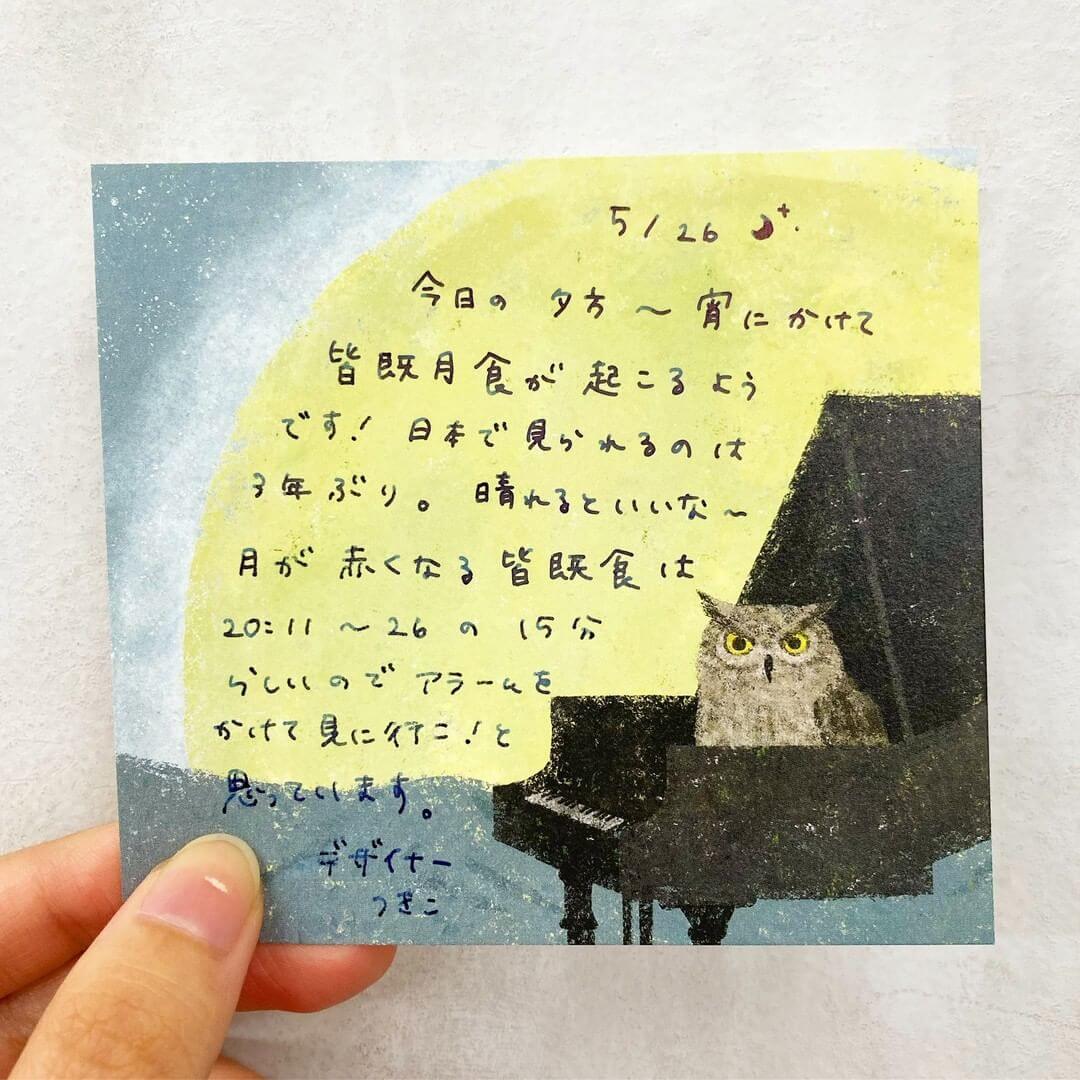 5/26
今日の 夕方 〜 宵にかけて
皆既月食が 起こるよう
です! 日本で見られるのは
3年ぶり。 晴れるといいな〜
月が 赤くなる 皆既食は
20:11 〜 26 の 15分
らしいので アラームを
かけて 見に行こ! と
思っています。
デザイナー
つきこ